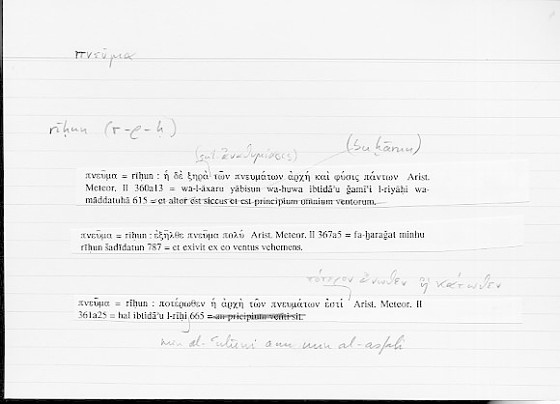 πνεῦμα
rīḥun (r-ʷ-ḥ)
(sc. ἀναθυμίασις) (buḫārun)
πνεῦμα = rīḥun : ἡ δὲ ξηρὰ τῶν πνευμάτων ἀρχὴ καὶ φύσις πάντων Arist.
Meteor. II 360a13 = wa-l-āxaru yābisun wa-huwa ibtidā'u ǧamī'i l-riyāḥi wa-
māddatuhā 615 = et alter est siccus et est principium omnium ventorum.
πνεῦμα = rīḥun : ἐξῆλθε πνεῦμα πολύ Arist. Meteor. II 367a5 = fa-ḫaraǧat minhu
rīḥun šadīdatun 787 = et exivit ex eo ventus vehemens.
πότερον ἄνωθεν ἢ κάτωθεν
πνεῦμα = rīḥun : ποτέρωθεν ἡ ἀρχὴ τῶν πνευμάτων ἐστί Arist. Meteor. II
361a25 = hal ibtidā'u l-rīḥi 665 = an pricipium venti sit.
min al-'ulūwi am min al-asfali